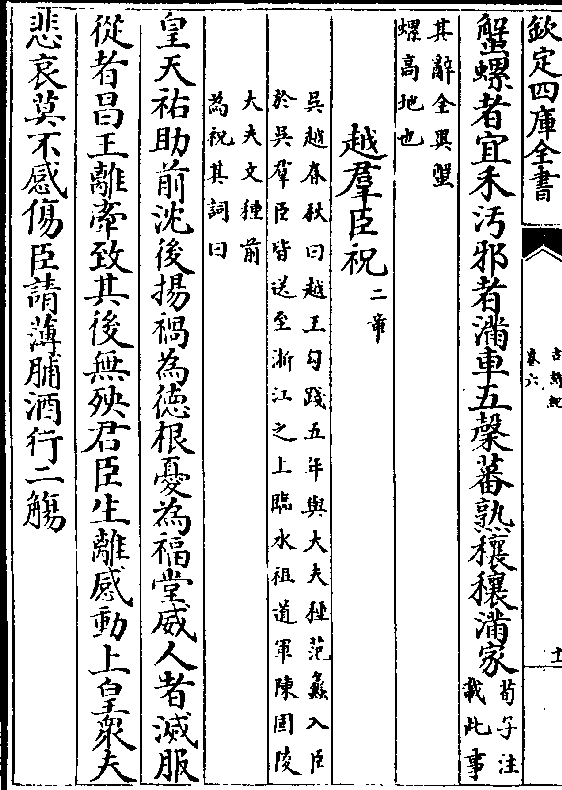 欽定四庫全書
古詩紀
卷六
十一
蟹螺者宜禾汚邪者滿車五榖蕃熟穰穰滿家
荀子注
載此事
其辭全異蟹
螺髙地也
越羣臣祝
二章
吳越春秋曰越王勾踐五年與大夫種范蠡入臣
於吳羣臣皆送至浙江之上臨水祖道軍陳固陵
大夫文種前
為祝其詞曰
皇天祐助前沈後揚禍為徳根憂為福堂威人者滅服
從者昌王離牽致其後無殃君臣生離感動上皇衆夫
悲哀莫不感傷臣請薄脯酒行二觴